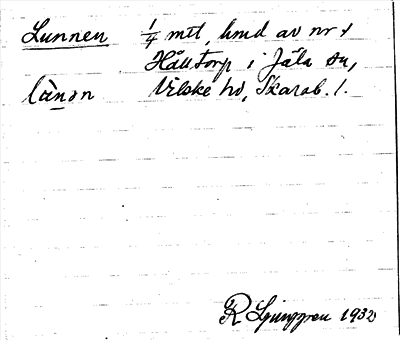 Lunnen ¼ mtl, hmd av nr 1
Hålltorp i Jäla sn,
lùnən Vilske hd, Skarab. l.
R Ljunggren 1932